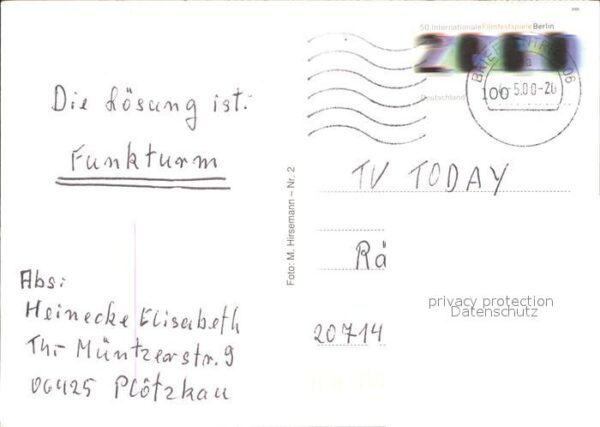 50. Internationale Filmfestspiele Berlin
Deutschland
100
5.00-20
Die Lösung ist:
Funkturm
Foto: M. Hirsemann – Nr. 2
TV TODAY
Rä
20714
privacy protection
Datenschutz
Abs:
Heinecke Elisabeth
Th.- Müntzerstr. 9
06425 Plötzkau